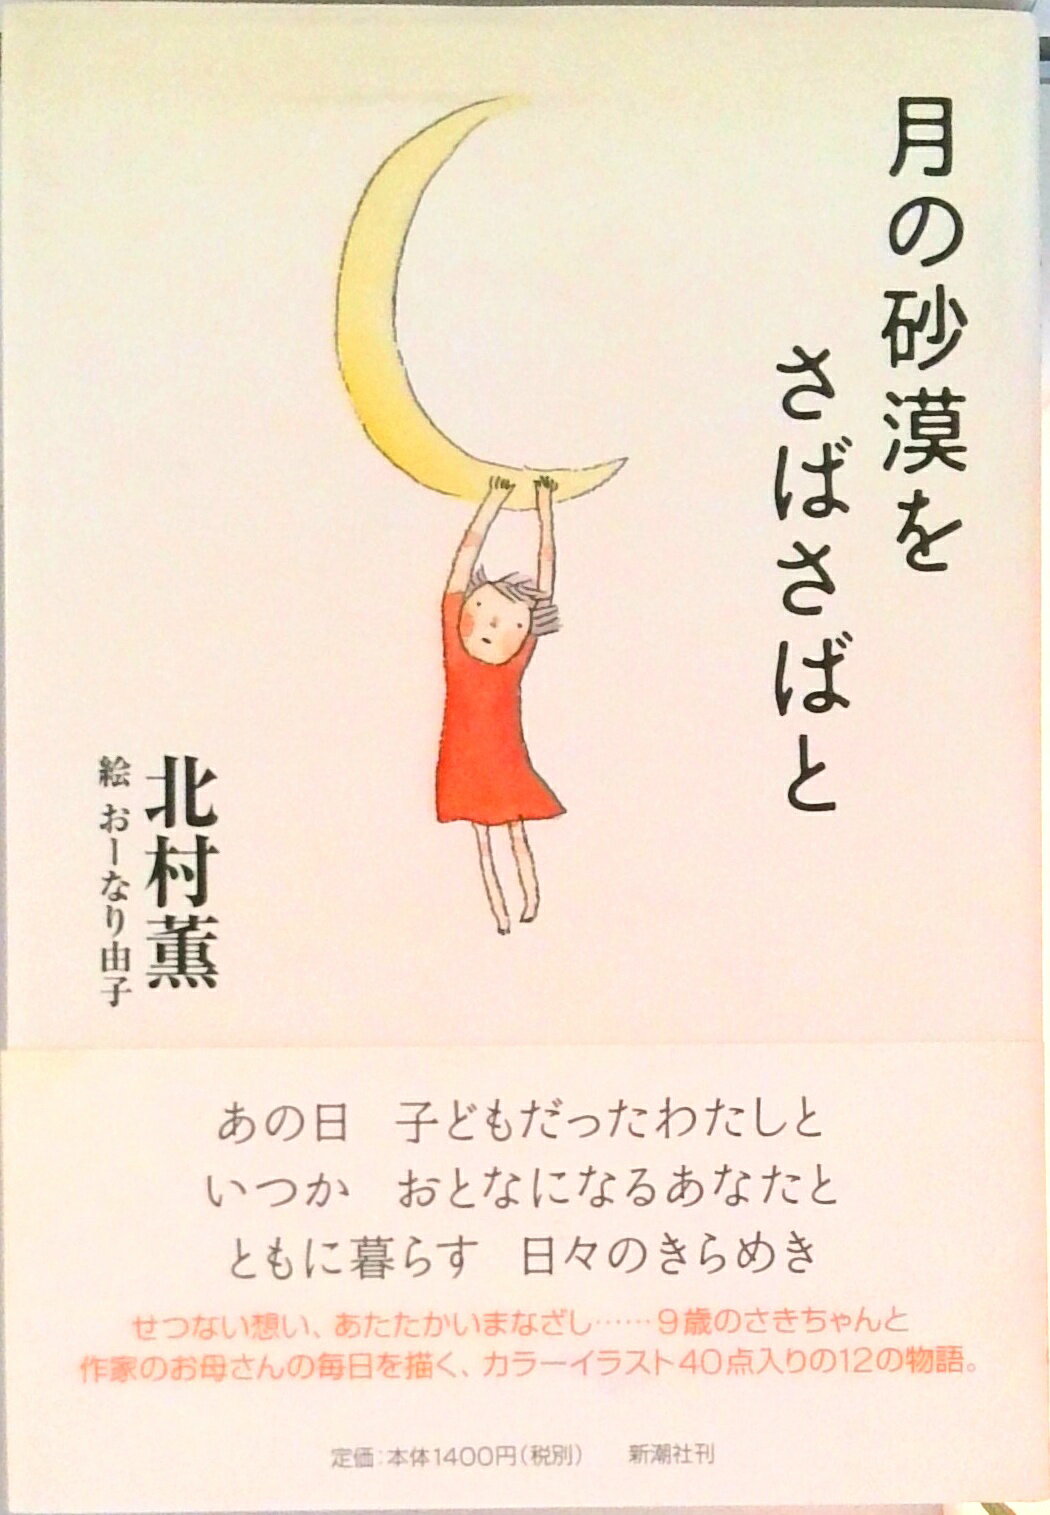 月の砂漠を
さばさばと
北村薫
絵 おーなり由子
あの日　子どもだったわたしと
いつか　おとなになるあなたと
ともに暮らす　日々のきらめき
せつない想い、あたたかいまなざし……9歳のさきちゃんと
作家のお母さんの毎日を描く、カラーイラスト40点入りの12の物語。
定価：本体1400円（税別）　新潮社刊